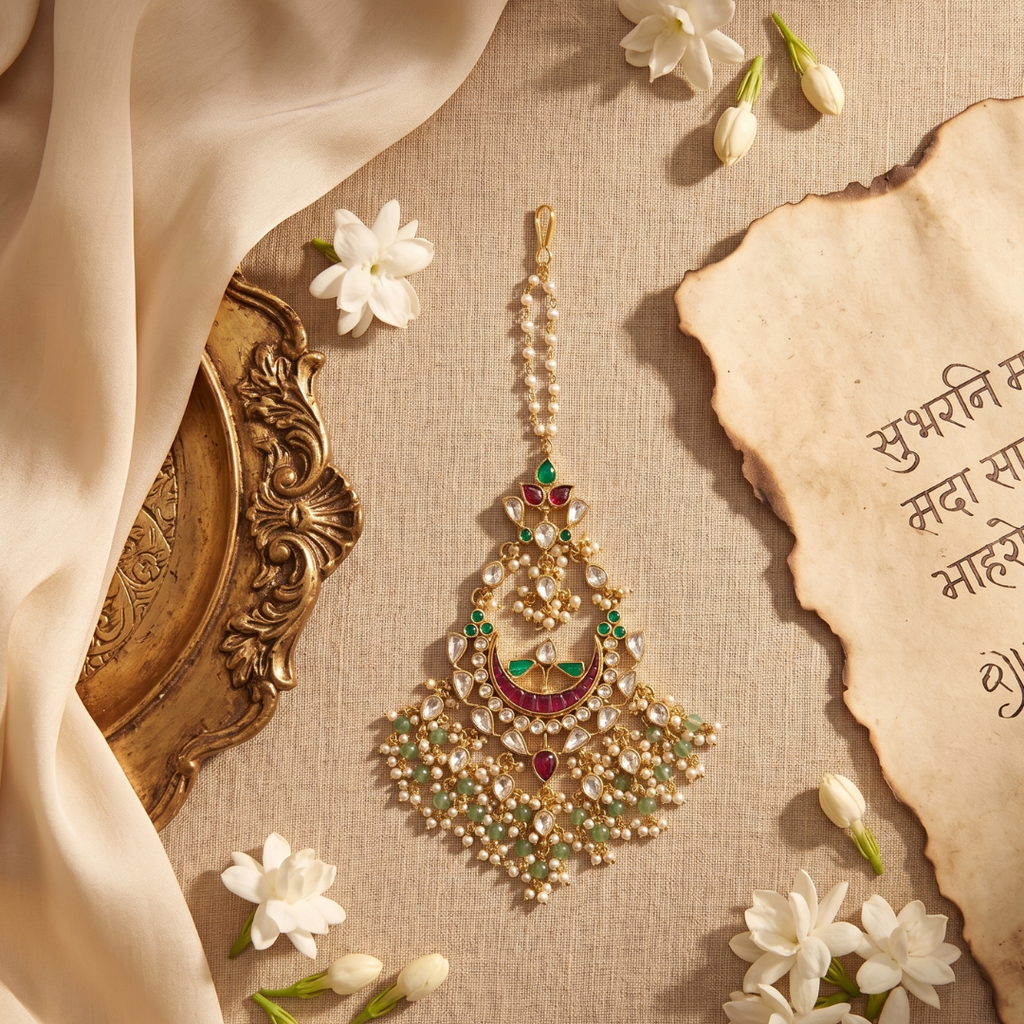 सुभरनि म
मदा सा
माहरो